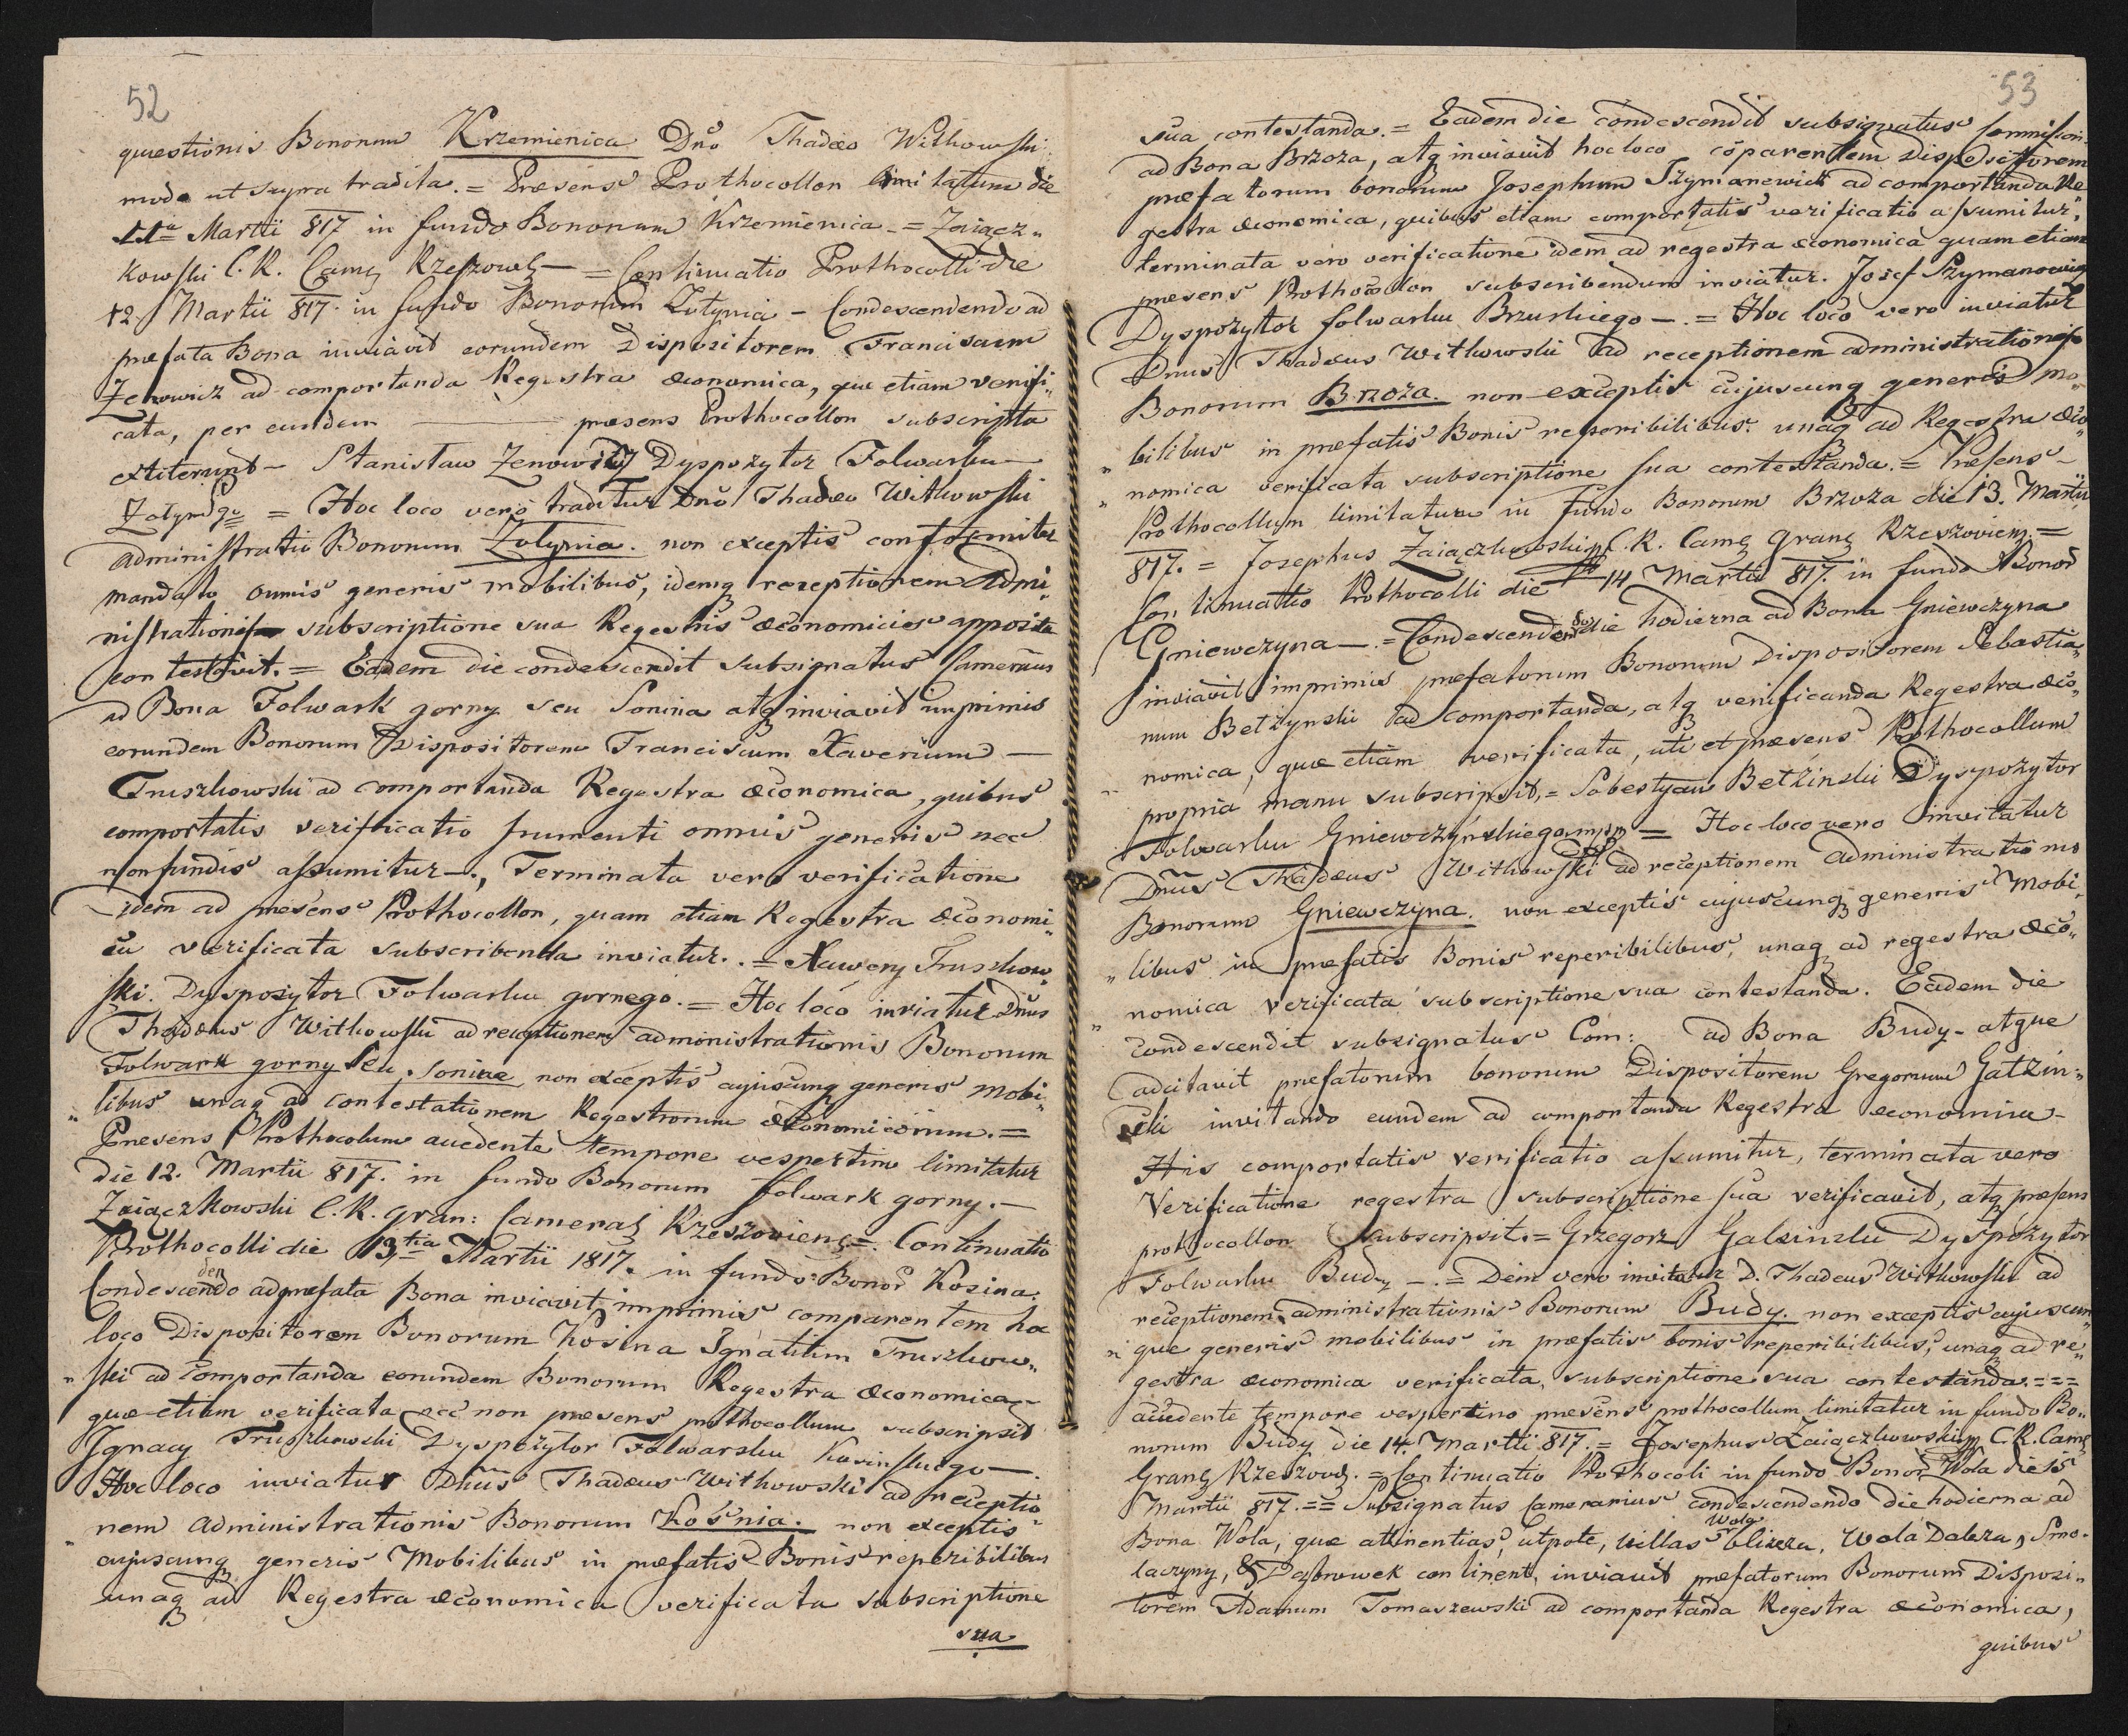 52
quæstionis Bonorum Krzemienica Dnõ Thadæo Withowski
modo ut supra tradita. = Præsens Prothocollon limitatum die
11ª Martii 817 in fundo Bonorum Krzemienica. = Zaiącz„
kowski C. R. Camȝ Rzeszowȝ — = Continuatio Prothocolli die
12 Martii 817. in fundo Bonorum Zołynia – Condescendendo ad
præfata Bona inviavit eorundem Dispositorem Franciscum
Zenowicz ad comportanda Regestra œconomica, quæ etiam verifi„
cata, per eundem — præsens Prothocollon subscripta
extiterunt – Stanisław Zenowicz Dyspozytor Folwarku —
Zołyńsgo = Hoc loco vero traditur Dnõ Thadæo Withowski
administratio Bonorum Zołynia. non exceptis conformiter
mandato omnis generis mobilibus, idemq receptionem Admi„
nistrationis subscriptione sua Regestris œconomicis apposita
contestavit. = Eadem die condescendit subsignatus Camerarius
ad Bona Folwark gorny seu Sonina atq inviavit imprimis
eorundem Bonorum Dispositorem Franciscum Xaverium —
Truszkowski ad comportanda Regestra œconomica, quibus
comportatis verificatio frumenti omnis generis nec
non fundis assumitur —, Terminata vero verificatione
idem ad præsens Prothocollon, quam etiam Regestra œconomi„
ca verificata subscribenda inviatur. = Xawery Truszkow„
ski. Dyspozytor Folwarku gornego. = Hoc loco inviatur Dnus
Thadæus Withowski ad receptionem administrationis Bonorum
Folwark gorny seu Soninæ non exceptis cujuscunq generis mobi„
„libus unaq ad contestationem Regestrorum œconomicorum. =
Præsens Prothocolum accedente tempore vespertino limitatur
die 12. Martii 817. in fundo Bonorum Folwark gorny. —
Zaiączkowski C. R. Gran: Cameraȝ Rzeszovienȝ =. Continuatio
Prothocolli die 13tia Martii 1817. in fundo Bonor Kosina.
Condescendendo ad præfata Bona inviavit imprimis comparentem hoc
loco Dispositorem Bonorum Kosina Ignatium Truszkow„
„ski ad comportanda eorundem Bonorum Regestra œconomica —
quæ etiam verificata nec non præsens prothocollum subscripsit
Ignacy Truszkowski Dyspozytor Folwarku Kosinskiego —.
Hoc loco inviatur Dnus Thadæus Withowski ad receptio„
nem administrationis Bonorum Kośnia. non exceptis
cujuscunq generis Mobilibus in præfatis Bonis reperibilibus
unaq ad Regestra œconomica verificata subscriptione
sua

53
sua contestanda. = Eadem die condescendit subsignatus
ad Bona Brzoza, atq inviavit hoc loco cõparentem Dispositorem
præfatorum bonorum Josephum Szymanewicz ad comportanda Re
gestra œconomica, quibus etiam comportatis verificatio assumitur,
terminata vero verificatione idem ad regestra œconomica quam etiam
præsens Prothocollon subscribendum inviatur. Josef Szymanowicz
Dyspozytor folwarku Brzuskiego —. = Hoc loco vero inviatur
Dnus Thadæus Withowski ad receptionem administrationis
Bonorum Brzoza. non exceptis cujuscunq generis mo„
„bilibus in præfatis Bonis reperibilibus. unaq ad Regestra œco„
„nomica verificata subscriptione sua contestanda. = Præsens —
Prothocollum limitatum in fundo Bonorum Brzoza die 13. Martii
817. = Josephus Zaiączkowski C. R. Camȝ Granȝ Rzeszovienȝ. =
Continuatio Prothocolli die 14 Martii 817. in fundo Bonor
Gniewczyna —. = Condescendendo die hodierna ad Bona Gniewczyna
inviavit imprimis præfatorum Bonorum Dispositorem Sebastia„
num Betzynski ad comportanda, atq verificanda Regestra œco„
nomica, quæ etiam verificata, uti et præsens Prothocollum
propria manu subscripsit, = Sebestyan Betzinski Dyspozytor
Folwarku Gniewczynskiego mpp = Hoc loco vero invitatur
Dnus Thadæus Withowski ad receptionem administrationis
Bonorum Gniewczyna. non exceptis cujuscunq generis Mobi„
„libus in præfatis Bonis reperibilibus, unaq ad regestra œco„
„nomica verificata subscriptione sua contestanda. Eadem die
condescendit subsignatus Com: ad Bona Budy – atque
adcitavit præfatorum bonorum Dispositorem Gregorium Gatzin„
ski invitando eundem ad comportanda Regestra œconomica –
His comportatis verificatio assumitur, terminata vero
Verificatione regestra subscriptione sua verificavit, atq præsens
prothocollon subscripsit. = Grzegorz Galzinski Dyspozytor
Folwarku Budy —. = Dein vero invitatur D. Thadeus Withowski ad
receptionem administrationis Bonorum Budy. non exceptis cujuscun„
„que generis mobilibus in præfatis bonis reperibilibus, unaq ad re„
gestra œconomica verificata, subscriptione sua contestanda. ===
accedente tempore vespertino præsens prothocollum limitatur in fundo Bo„
norum Budy die 14. Martii 817. = Josephus Zaiączkowski C. R. Camȝ
Granȝ Rzeszovȝ. = Continuatio Prothocoli in fundo Bonor Wola die 15
Martii 817. == Subsignatus Camerarius condescendendo die hodierna ad
Bona Wola, quæ attinentias, utpote, villas Wola blizza, Wola Dalsza, Smo„
laczyny, & Dąbrowek continent, inviavit præfatorum Bonorum Disposi„
torem Adamum Tomaszewski ad comportanda Regestra œconomica,
quibus